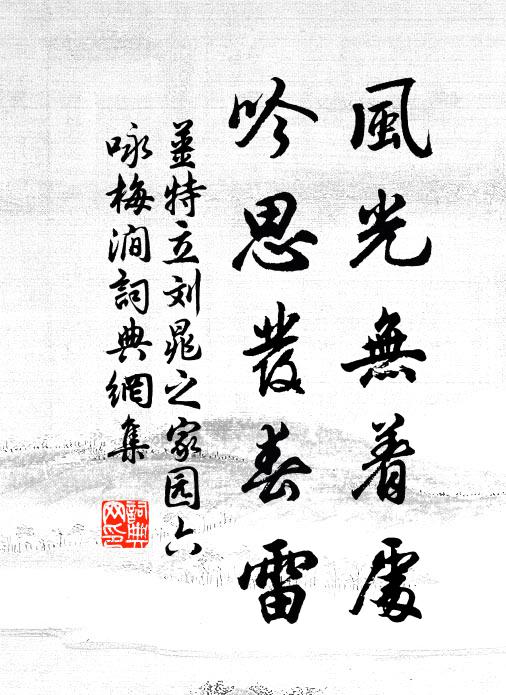 風光無着處
吟思發春雷
姜特立刘晁之家园六
咏梅澗詞典網集
詞典
网印